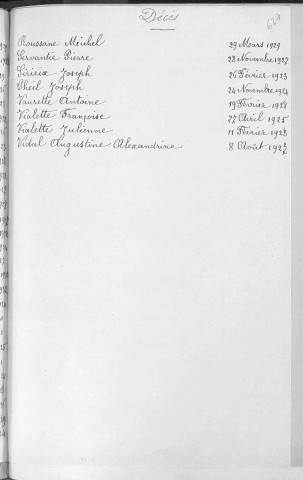 Décès
Roussane Michel 29 Mars 1929
Servantie Pierre 28 Novembre 1927
Sérieix Joseph 26 Février 1923
Theil Joseph 24 Novembre 1924
Vaurette Antoine 19 Février 1928
Vialette Françoise 27 Avril 1925
Vialette Julienne 11 Février 1928
Vidal Augustine Alexandrine 8 Août 1927